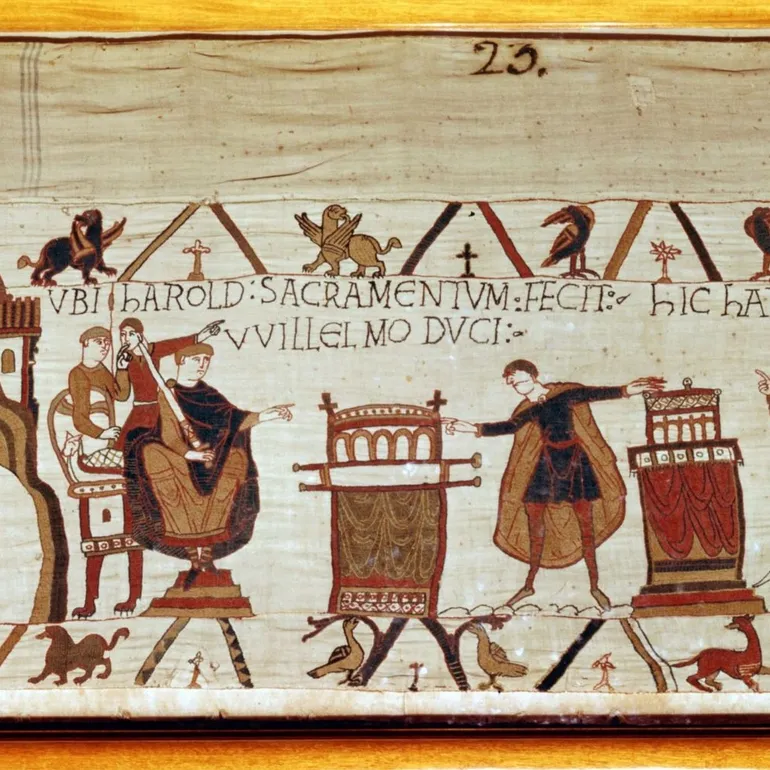 23.
VBI hAROLD : SACRAMENTVM : FECIT : hIC hA
VVILLELMO DVCI :